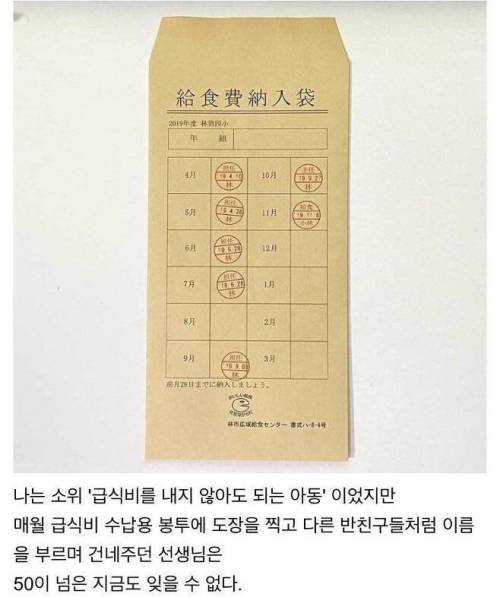 給食費納入袋
2019年度 林第四小
年 組
4月 担任 19.4.10 林 10月 主任 19.9.27 林
5月 担任 19.4.26 林 11月 給食 19.11.8 小林
6月 担任 林 12月
7月 担任 19.6.28 林 1月
8月 2月
9月 担任 林 3月
前月28日までに納入しましょう。
おいしい給食
林市広域給食センター 書式ハ-8-4号
나는 소위 '급식비를 내지 않아도 되는 아동' 이었지만
매월 급식비 수납용 봉투에 도장을 찍고 다른 반친구들처럼 이름
을 부르며 건네주던 선생님은
50이 넘은 지금도 잊을 수 없다.